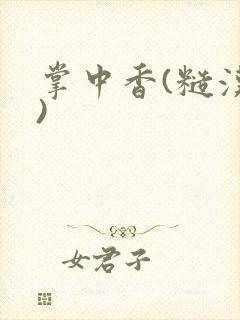 掌中香(糙汉
)
女君子